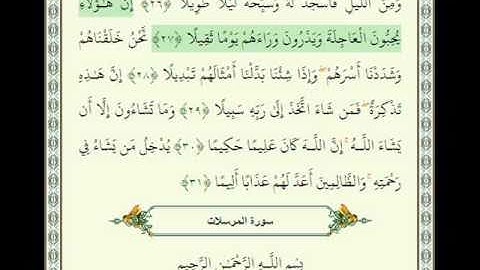 وَمِنَ اللَّيْلِ فَاسْجُدْ لَهُ وَسَبِّحْهُ لَيْلًا طَوِيلًا ﴿٢٦﴾ إِنَّ هَـٰؤُلَاءِ
يُحِبُّونَ الْعَاجِلَةَ وَيَذَرُونَ وَرَاءَهُمْ يَوْمًا ثَقِيلًا ﴿٢٧﴾ نَّحْنُ خَلَقْنَاهُمْ
وَشَدَدْنَا أَسْرَهُمْ ۖ وَإِذَا شِئْنَا بَدَّلْنَا أَمْثَالَهُمْ تَبْدِيلًا ﴿٢٨﴾ إِنَّ هَـٰذِهِ
تَذْكِرَةٌ ۖ فَمَن شَاءَ اتَّخَذَ إِلَىٰ رَبِّهِ سَبِيلًا ﴿٢٩﴾ وَمَا تَشَاءُونَ إِلَّا أَن
يَشَاءَ اللَّـهُ ۚ إِنَّ اللَّـهَ كَانَ عَلِيمًا حَكِيمًا ﴿٣٠﴾ يُدْخِلُ مَن يَشَاءُ فِي
رَحْمَتِهِ ۚ وَالظَّالِمِينَ أَعَدَّ لَهُمْ عَذَابًا أَلِيمًا ﴿٣١﴾
سورة المرسلات
بِسْمِ اللَّـهِ الرَّحْمَـٰنِ الرَّحِيمِ